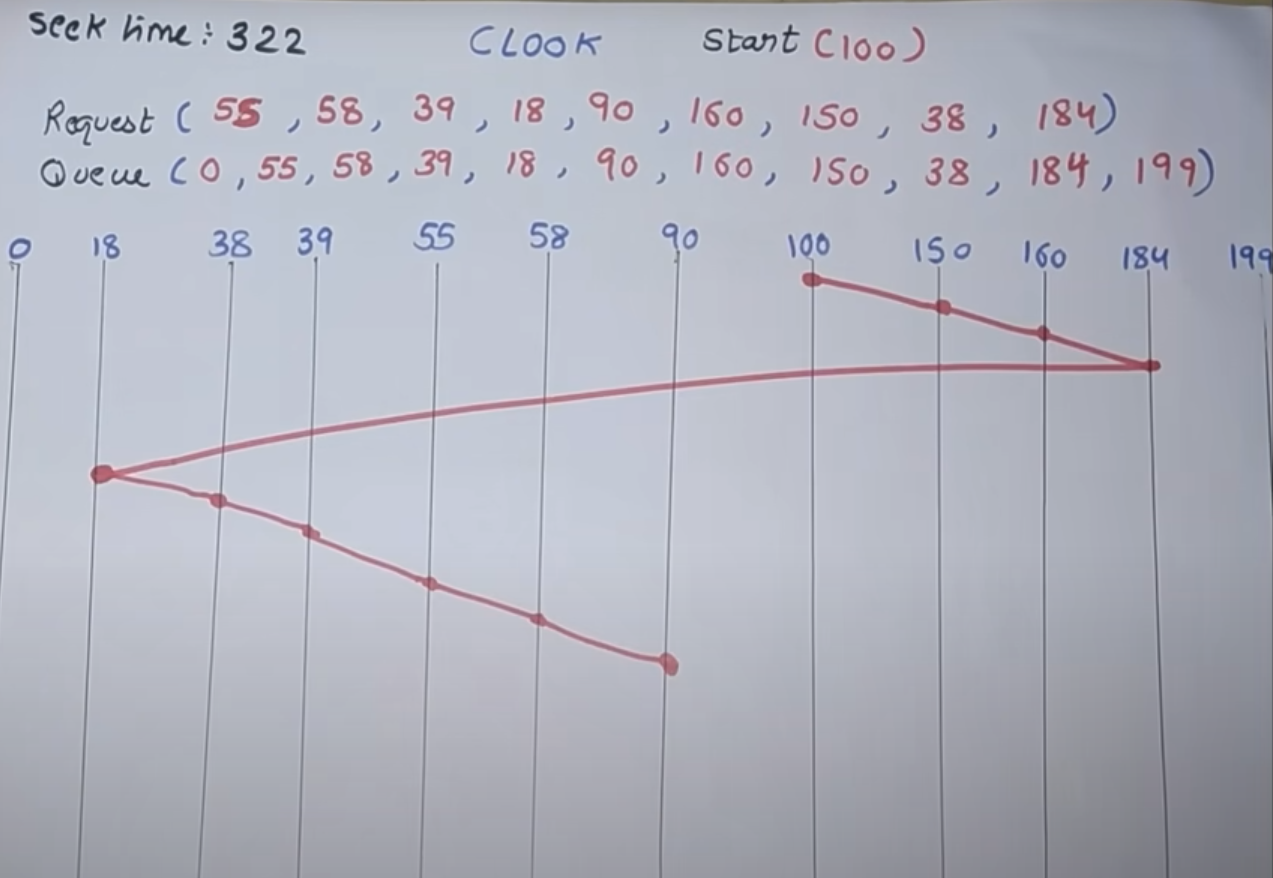 Seek time: 322 CLOOK Start (100)
Request ( 55 , 58, 39 , 18 , 90 , 160 , 150 , 38 , 184)
Queue (0 , 55, 58 , 39 , 18 , 90 , 160 , 150 , 38 , 184 , 199)
0 18 38 39 55 58 90 100 150 160 184 199